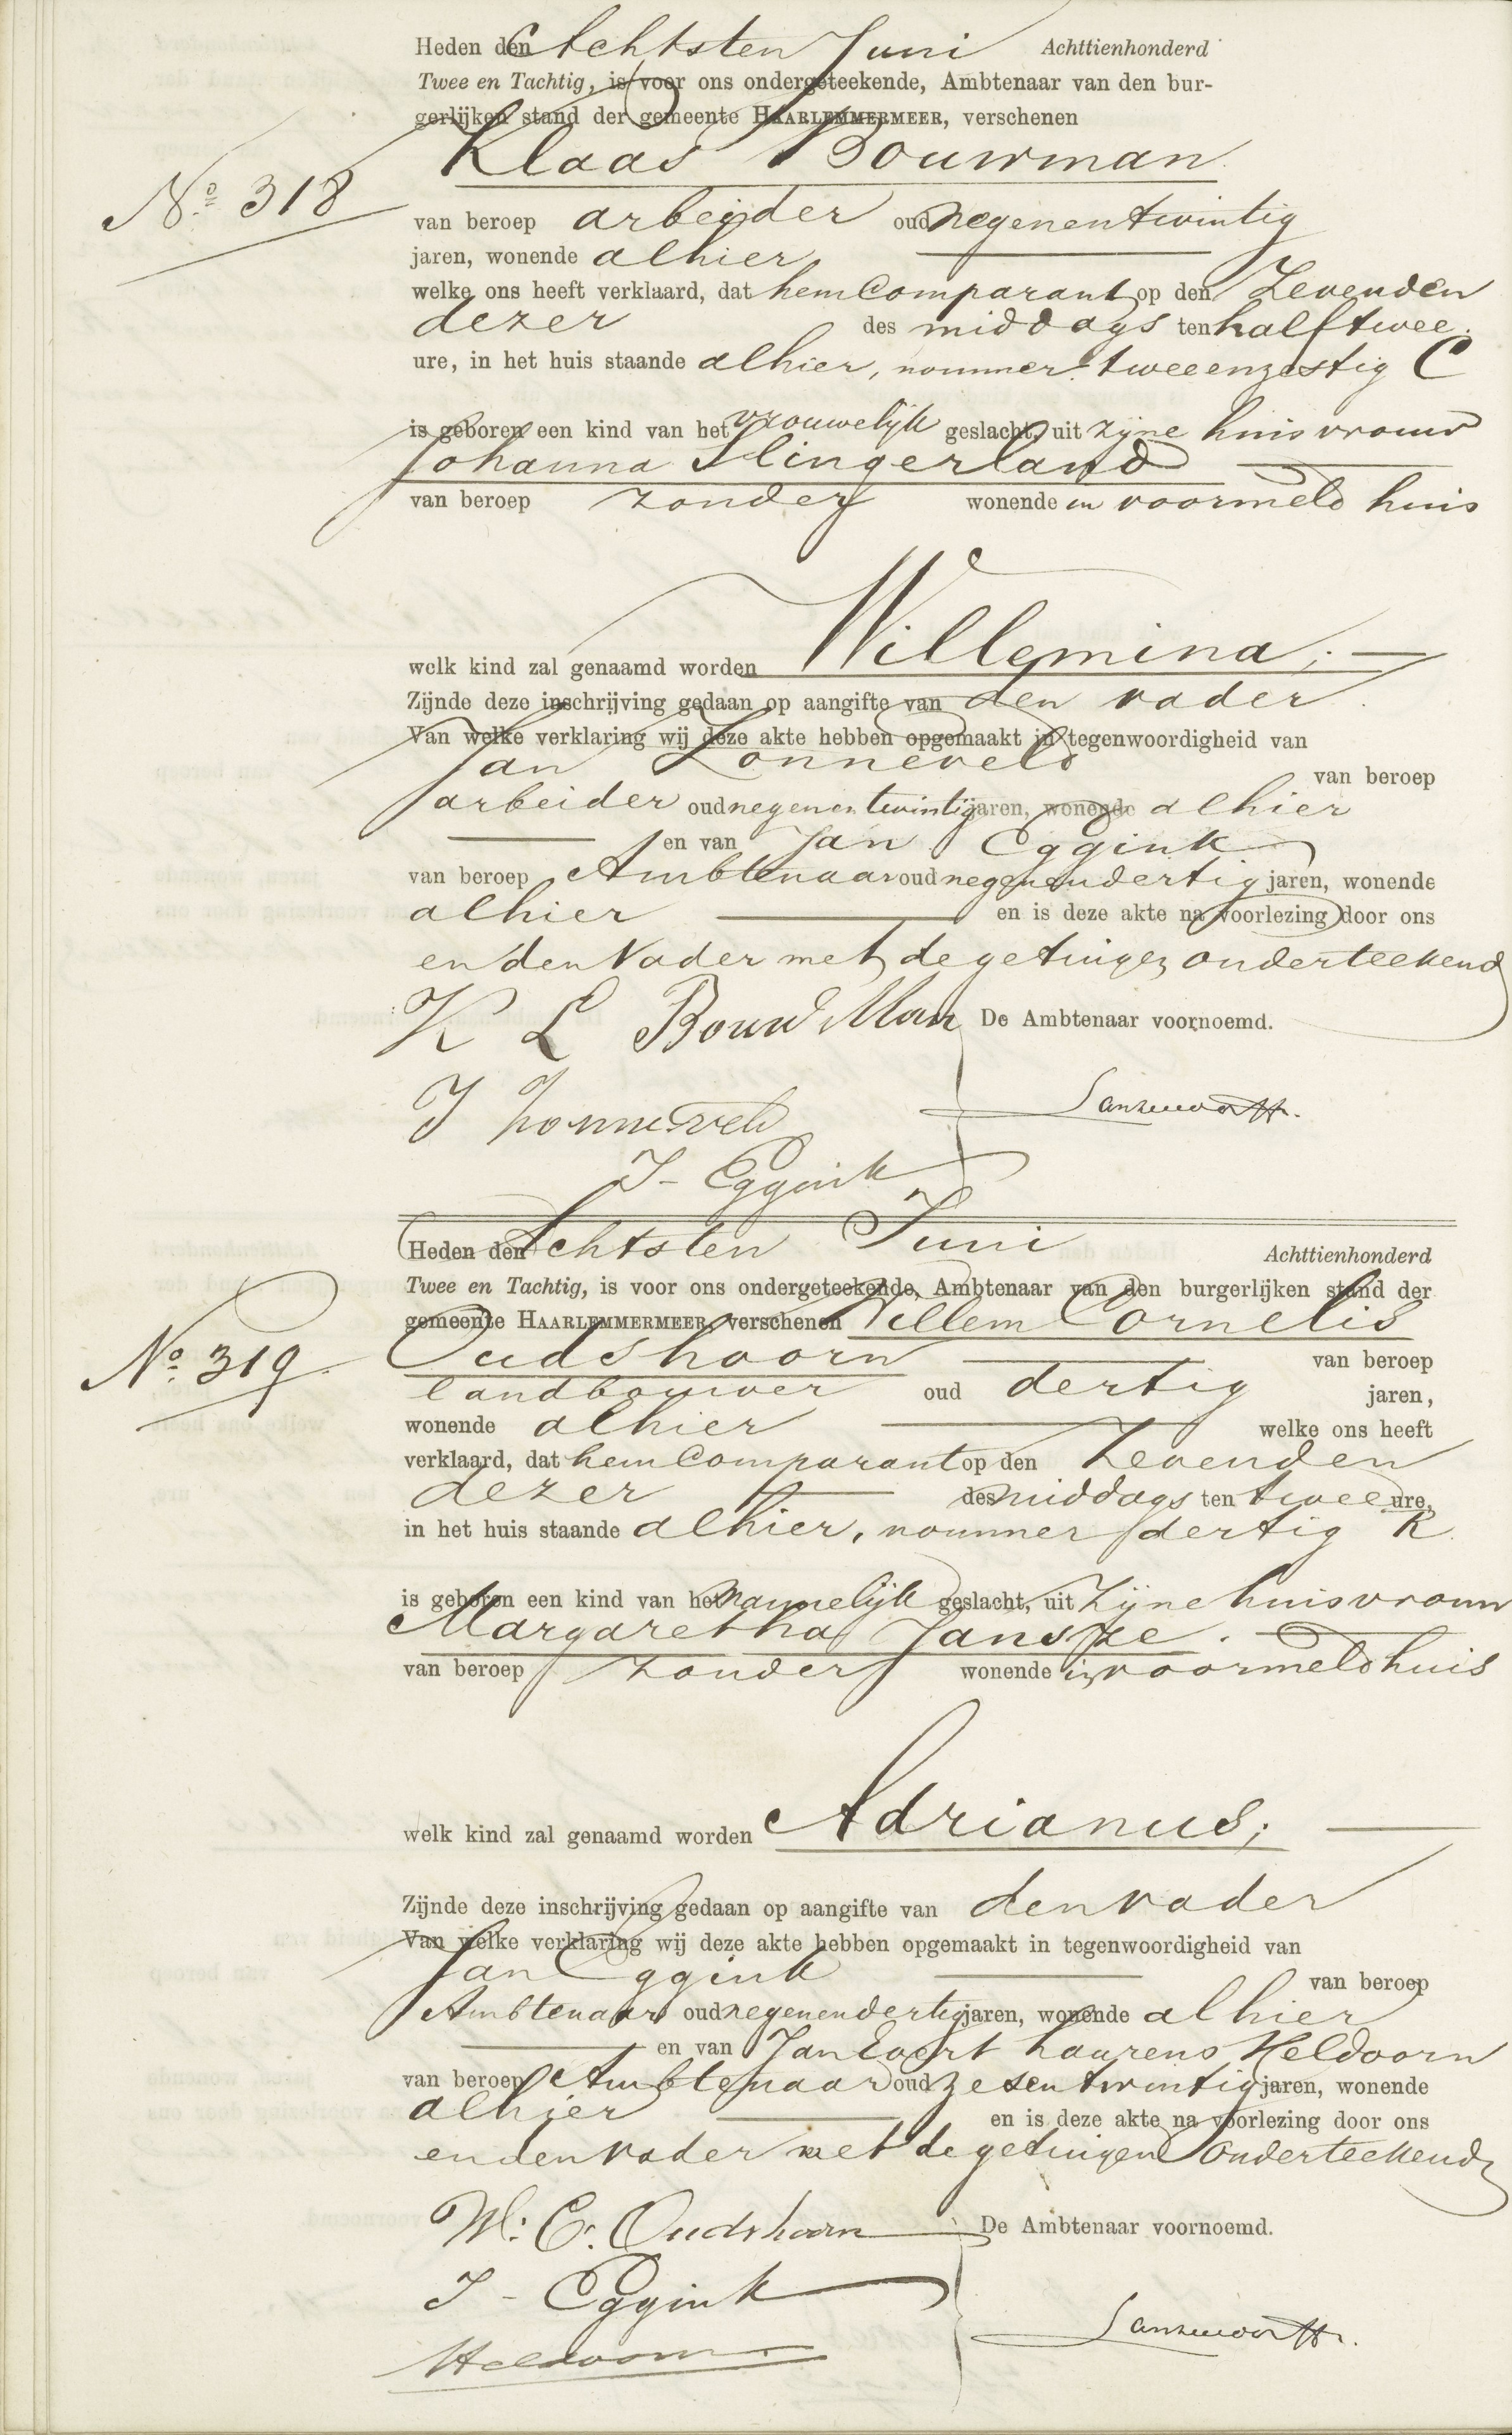 Heden den Achtsten Juni Achttienhonderd
Twee en Tachtig, is voor ons ondergeteekende, Ambtenaar van den bur-
gerlijken stand der gemeente HAARLEMMERMEER, verschenen
Klaas Bouwman
No. 318
van beroep arbeider oud negenentwintig
jaren, wonende alhier
welke ons heeft verklaard, dat hem Comparant op den Zevenden
dezer des middags ten half twee
ure, in het huis staande alhier, nommer tweeenzestig C
is geboren een kind van het vrouwelijk geslacht, uit zijne huisvrouw
Johanna Slingerland
van beroep zonder wonende in voormeld huis
welk kind zal genaamd worden Willemina;
Zijnde deze inschrijving gedaan op aangifte van den vader
Van welke verklaring wij deze akte hebben opgemaakt in tegenwoordigheid van
Jan Zonneveld van beroep
arbeider oud negenentwintig jaren, wonende alhier
en van Jan Eggink
van beroep Ambtenaar oud negenendertig jaren, wonende
alhier en is deze akte na voorlezing door ons
en den Vader met de getuigen onderteekend
K L BouwMan De Ambtenaar voornoemd.
J Zonneveld
J- Eggink
Heden den Achtsten Juni Achttienhonderd
Twee en Tachtig, is voor ons ondergeteekende, Ambtenaar van den burgerlijken stand der
gemeente HAARLEMMERMEER, verschenen Willem Cornelis
No. 319
Oudshoorn van beroep
landbouwer oud dertig jaren,
wonende alhier welke ons heeft
verklaard, dat hem Comparant op den Zevenden
dezer des middags ten twee ure,
in het huis staande alhier, nommer dertig R
is geboren een kind van het mannelijk geslacht, uit zijne huisvrouw
Margaretha Jansze.
van beroep zonder wonende in voormeld huis
welk kind zal genaamd worden Adrianus;
Zijnde deze inschrijving gedaan op aangifte van den vader
Van welke verklaring wij deze akte hebben opgemaakt in tegenwoordigheid van
Jan Eggink van beroep
Ambtenaar oud negenendertig jaren, wonende alhier
en van Jan Evert Laurens Heldoorn
van beroep Ambtenaar oud zesentwintig jaren, wonende
alhier en is deze akte na voorlezing door ons
en den vader met de getuigen onderteekend
W. C. Oudshoorn De Ambtenaar voornoemd.
J- Eggink
Heldoorn